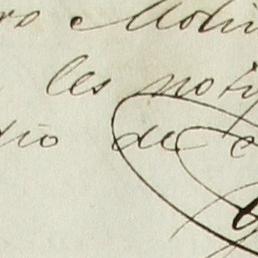 ro Moli
les noti
dio de c